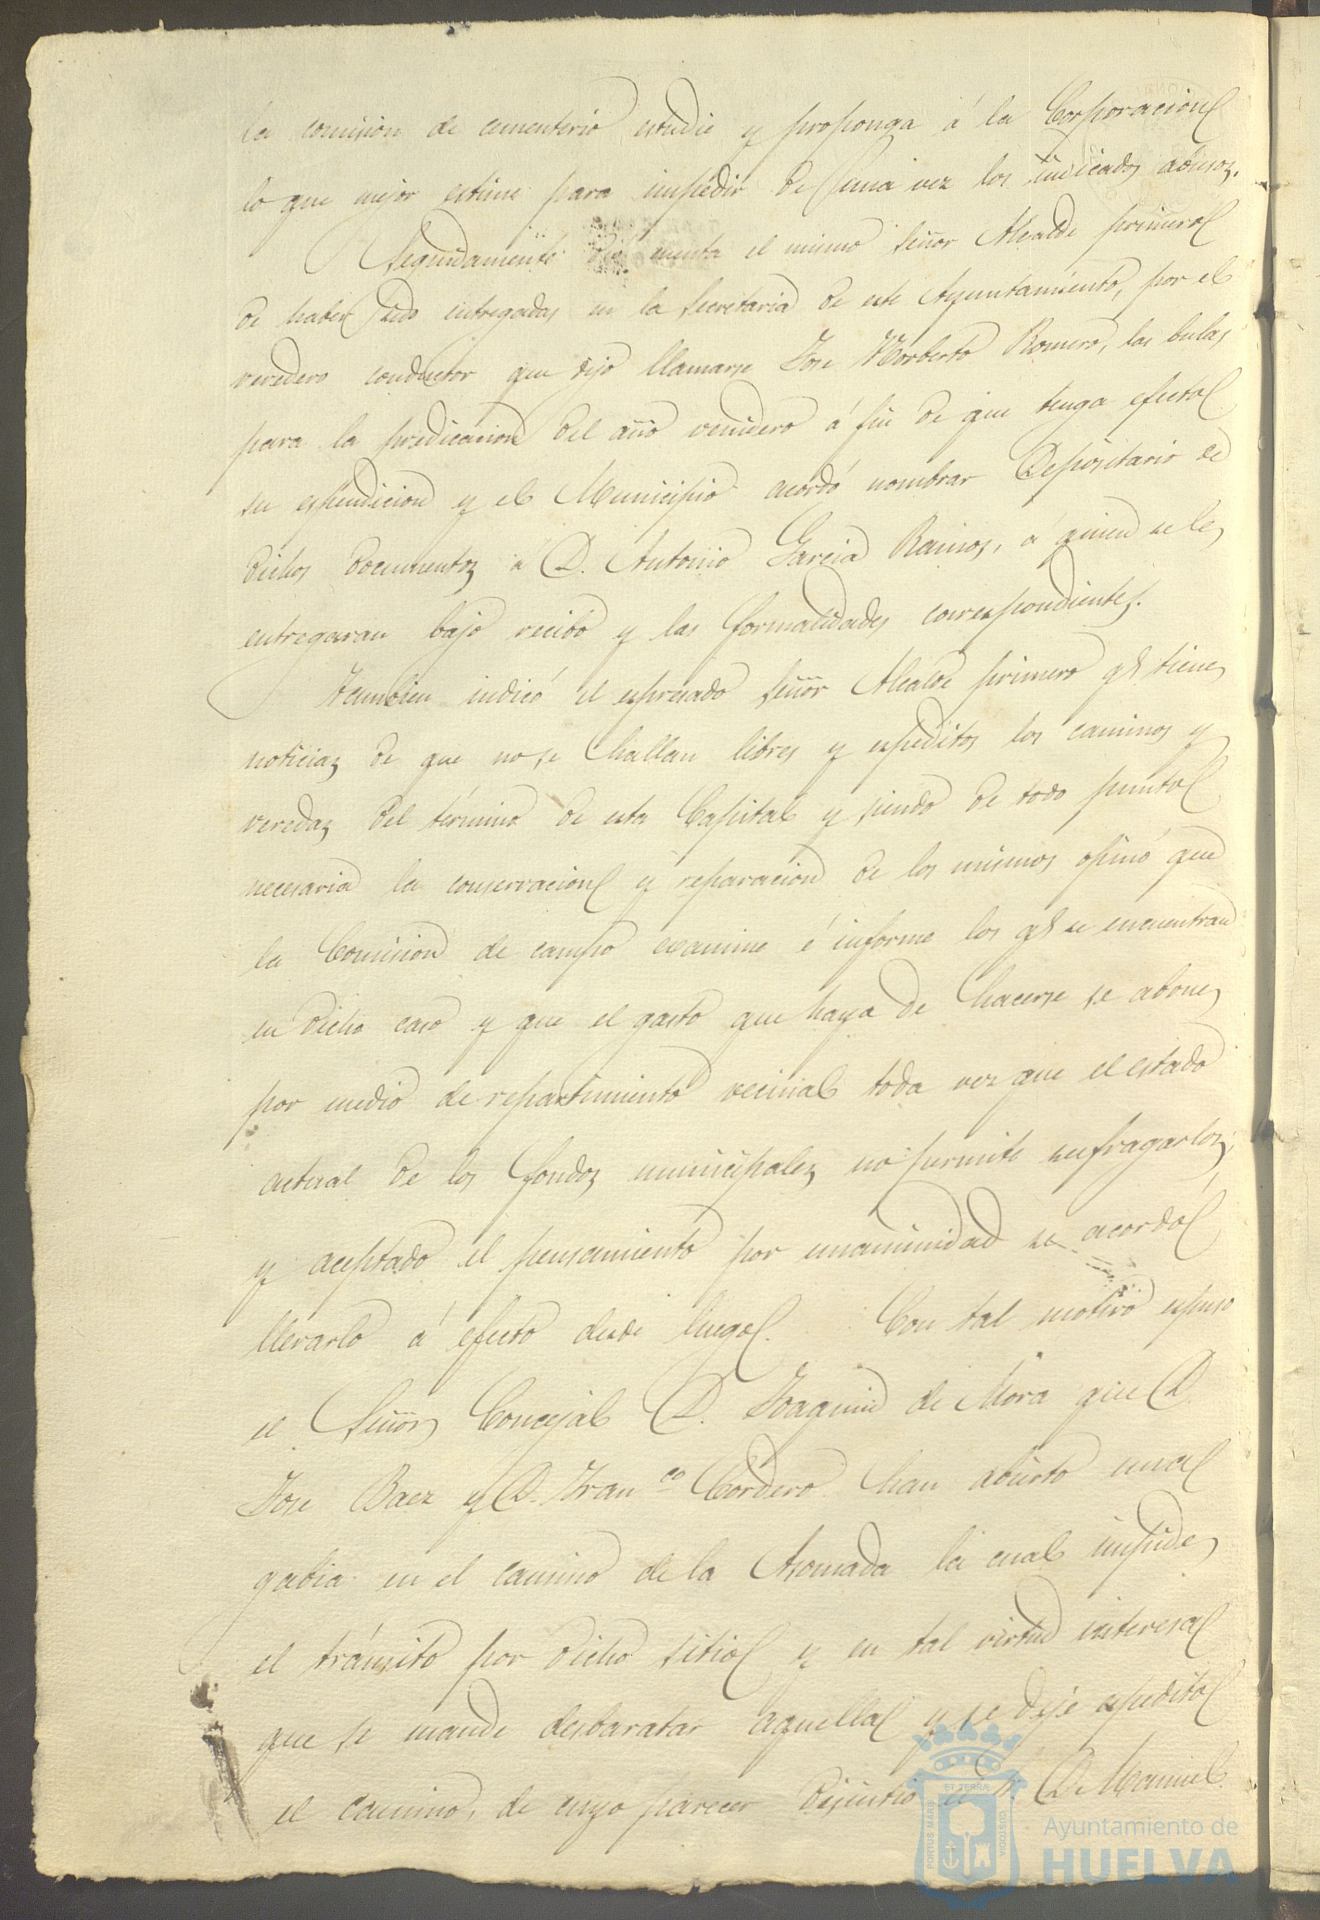 la comision de cementerio estudie y proponga á la Corporacion
lo que mejor estime para impedir de una vez los indicados abusos.
Seguidamente dió cuenta el mismo Señor Alcalde primero
de haber sido entregadas en la Secretaria de este Ayuntamiento, por el
veredero conductor que dijo llamarse Jose Norberto Romero, las bulas
para la predicacion del año venidero á fin de que tenga efecto
su espendicion y el Municipio acordó nombrar Depositario de
dichos documentos á D. Antonio Garcia Ramos, á quien se le
entregaran bajo recibo y las formalidades correspondientes.
Tambien indicó el espresado Señor Alcalde primero q.e tiene
noticias de que no se hallan libres y espeditos los caminos y
veredas del término de esta Capital y siendo de todo punto
necesaria la conservacion y reparacion de los mismos opinó que
la Comision de campo examine é informe los q.e se encuentran
en dicho caso y que el gasto que haya de hacerse se abone
por medio de repartimiento vecinal toda vez que el estado
actual de los fondos municipales no permite sufragarlos,
y aceptado el pensamiento por unanimidad se acordó
llevarlo á efecto desde luego. Con tal motivo espuso
el Señor Concejal D. Joaquin de Mora que D.
Jose Baez y D. Fran.co Cordero han abierto una
gabia en el camino de la Asomada la cual impide
el tránsito por dicho sitio y en tal virtud interesa
que se mande desbaratar aquella y se deje espedito
el camino, de cuyo parecer disintió el Sr. D. Manuel
PORTUS MARIS
ET TERRÆ
CUSTODIA
Ayuntamiento de
HUELVA